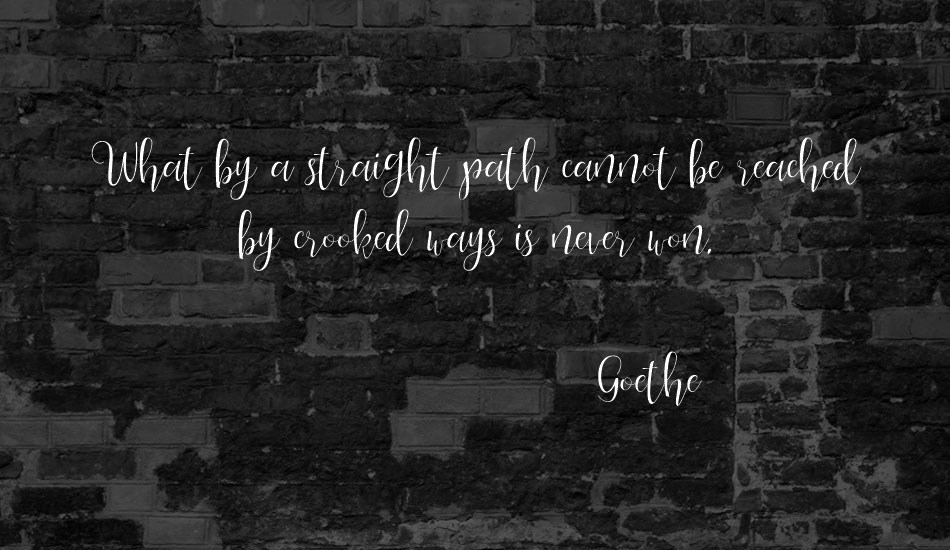 What by a straight path cannot be reached
by crooked ways is never won.
Goethe